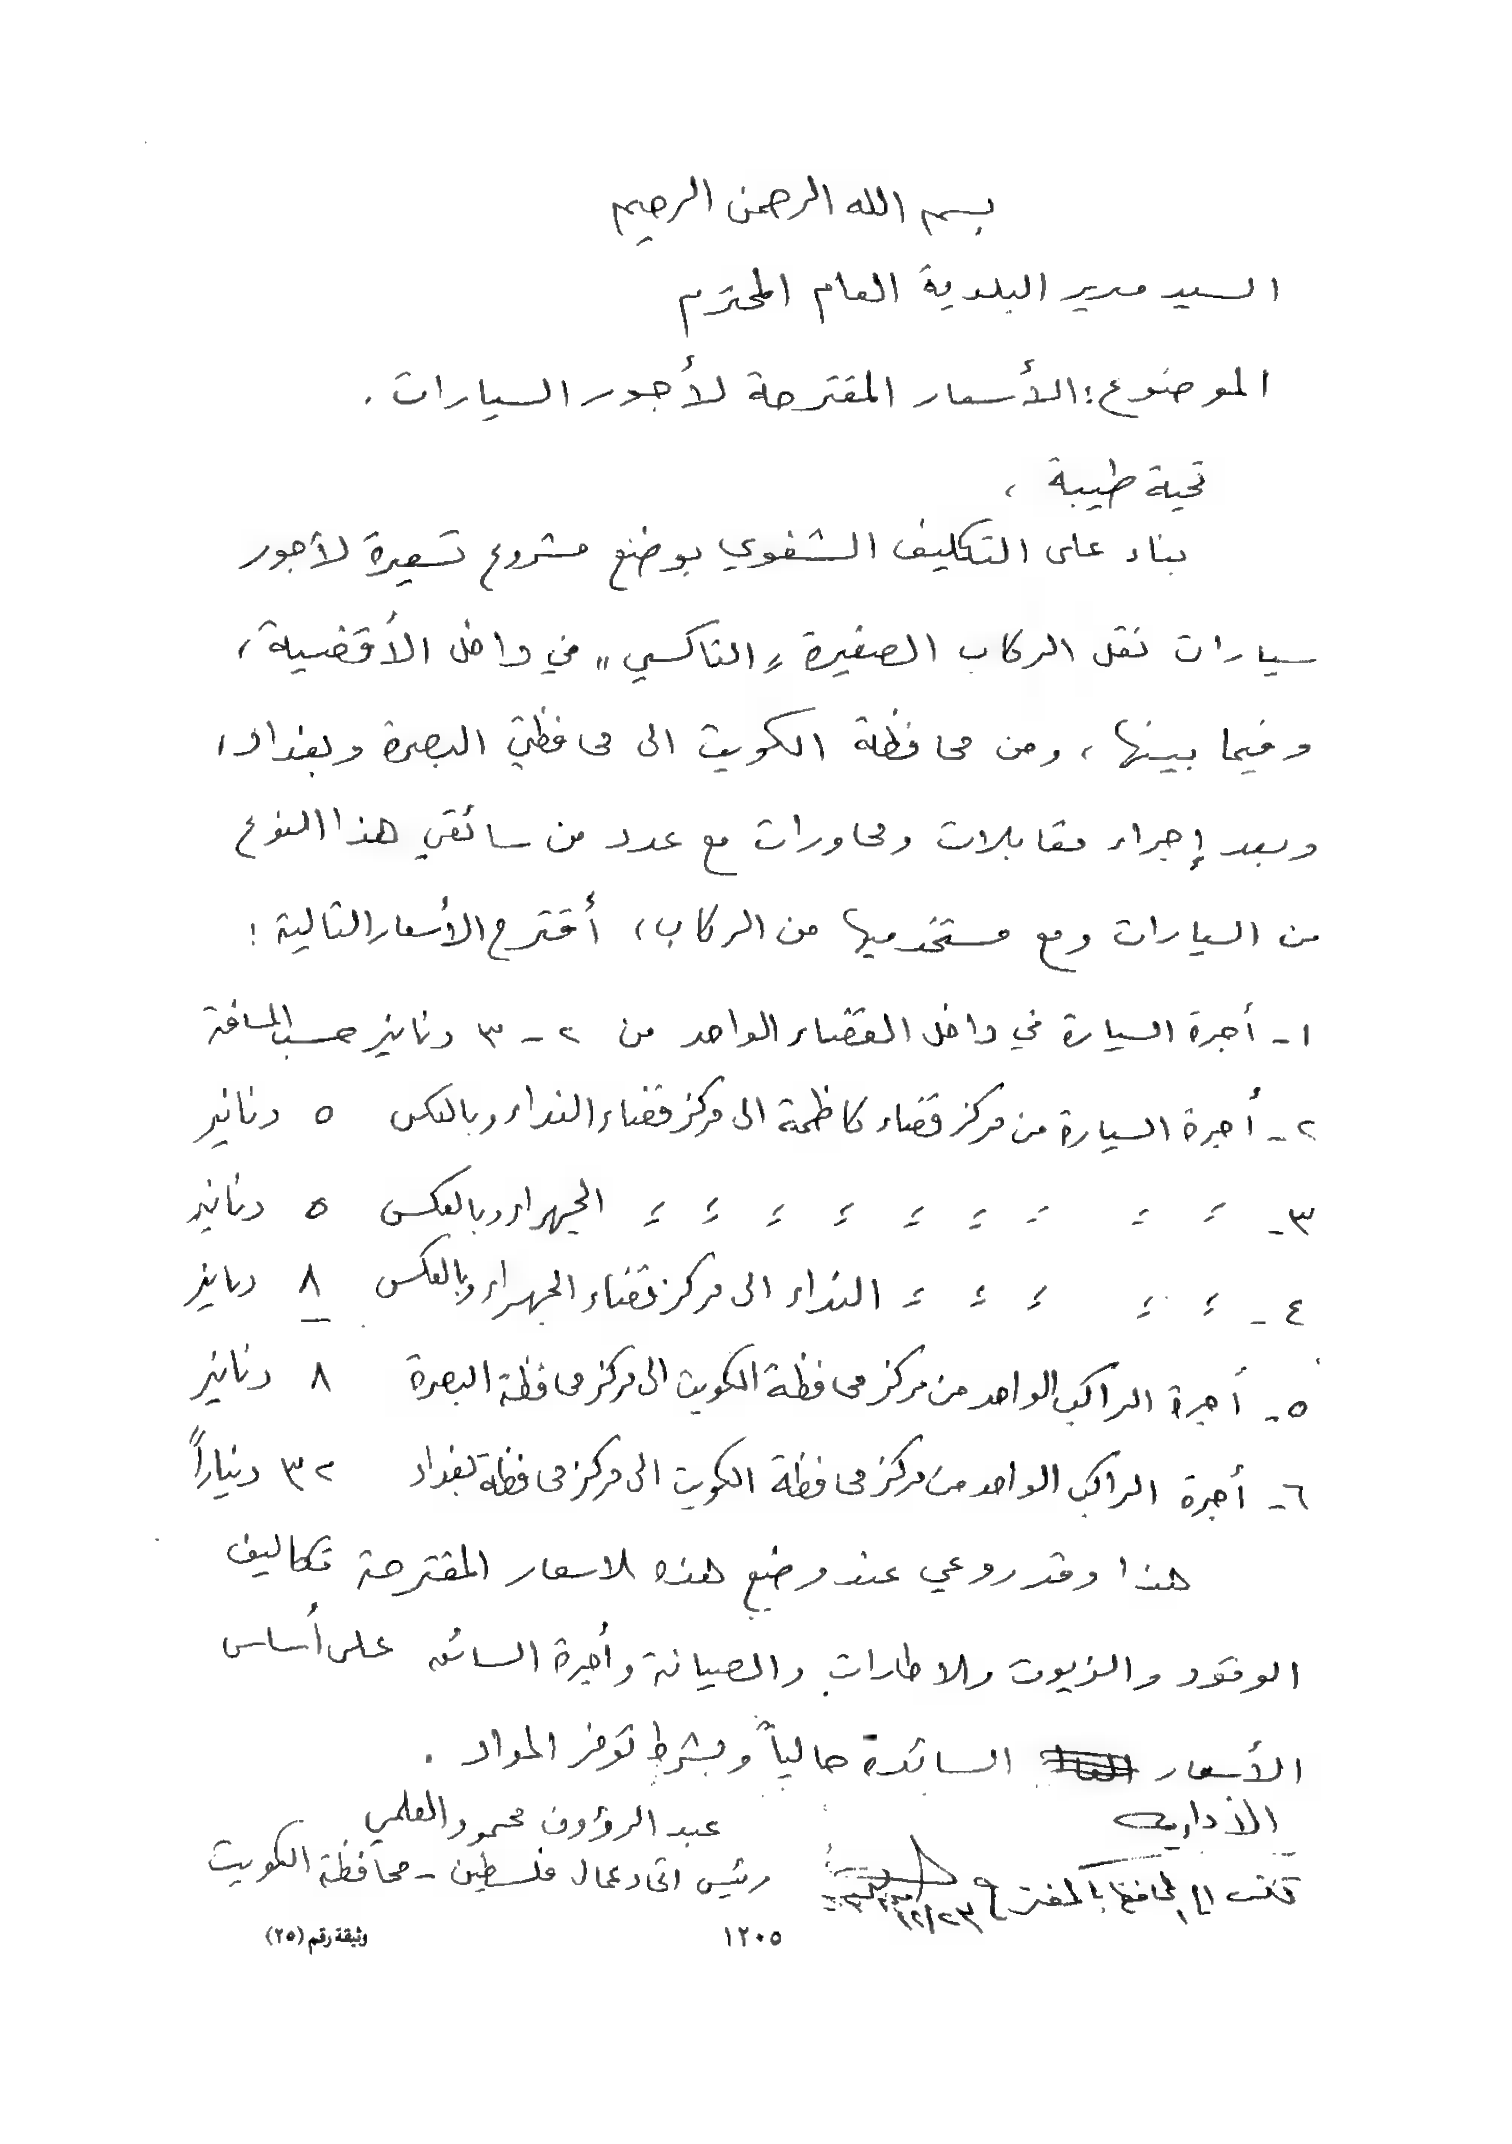 بسم الله الرحمن الرحيم
السيد مدير البلدية العام المحترم
الموضوع: الأسعار المقترحة لأجور السيارات .
تحية طيبة ،
بناء على التكليف الشفوي بوضع مشروع تسعيرة لأجور
سيارات نقل الركاب الصغيرة "التاكسي" في داخل الأقضية ،
وفيما بينها ، ومن محافظة الكويت الى محافظتي البصرة وبغداد ،
وبعد إجراء مقابلات ومحاورات مع عدد من سائقي هذا النوع
من السيارات ومع مستخدميها من الركاب ، أقترح الأسعار التالية :
١- أجرة السيارة في داخل القضاء الواحد من ٢ - ٣ دنانير حسب المسافة
٢- أجرة السيارة من مركز قضاء كاظمة الى مركز قضاء النداء وبالعكس ٥ دنانير
٣- ء ء ء ء ء ء ء ء ء الجهراء وبالعكس ٥ دنانير
٤- ء ء ء ء ء النداء الى مركز قضاء الجهراء وبالعكس ٨ دنانير
٥- أجرة الراكب الواحد من مركز محافظة الكويت الى مركز محافظة البصرة ٨ دنانير
٦- أجرة الراكب الواحد من مركز محافظة الكويت الى مركز محافظة بغداد ٣٢ ديناراً
هذا وقد روعي عند وضع هذه الاسعار المقترحة تكاليف
الوقود والزيوت والاطارات والصيانة وأجرة السائق على أساس
الأسعار السائدة حالياً وبشرط توفر المواد .
عبد الرؤوف محمود العلمي
رئيس اتحاد عمال فلسطين - محافظة الكويت
الادارية
تكتب الى المحافظ بالمقترح
١٢/٢٣
١٢٠٥
وثيقة رقم (٢٥)